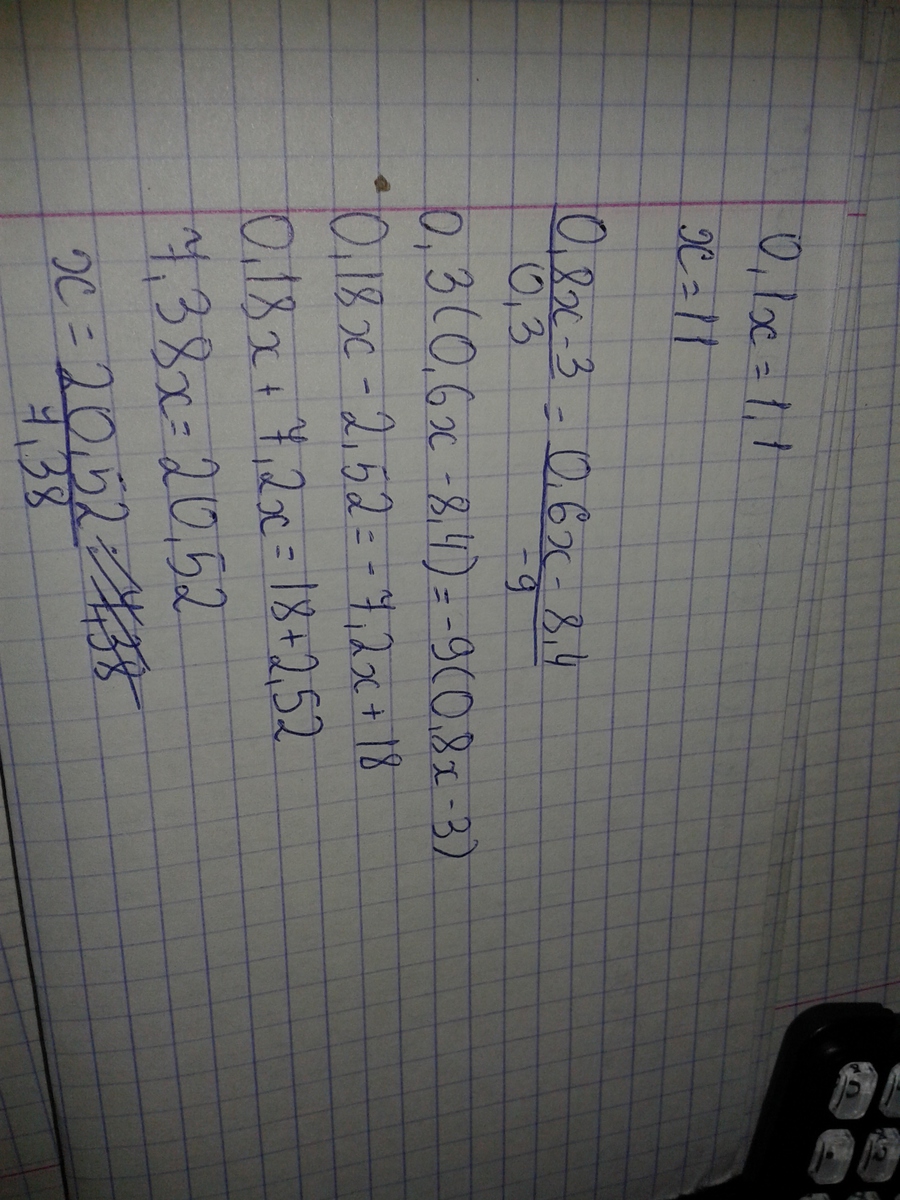 0,1x = 1,1
x = 11
0,8x - 3 = 0,6x - 8,4
0,3 -9
0,3(0,6x - 8,4) = -9(0,8x - 3)
0,18x - 2,52 = -7,2x + 18
0,18x + 7,2x = 18 + 2,52
7,38x = 20,52
x = 20,52
7,38